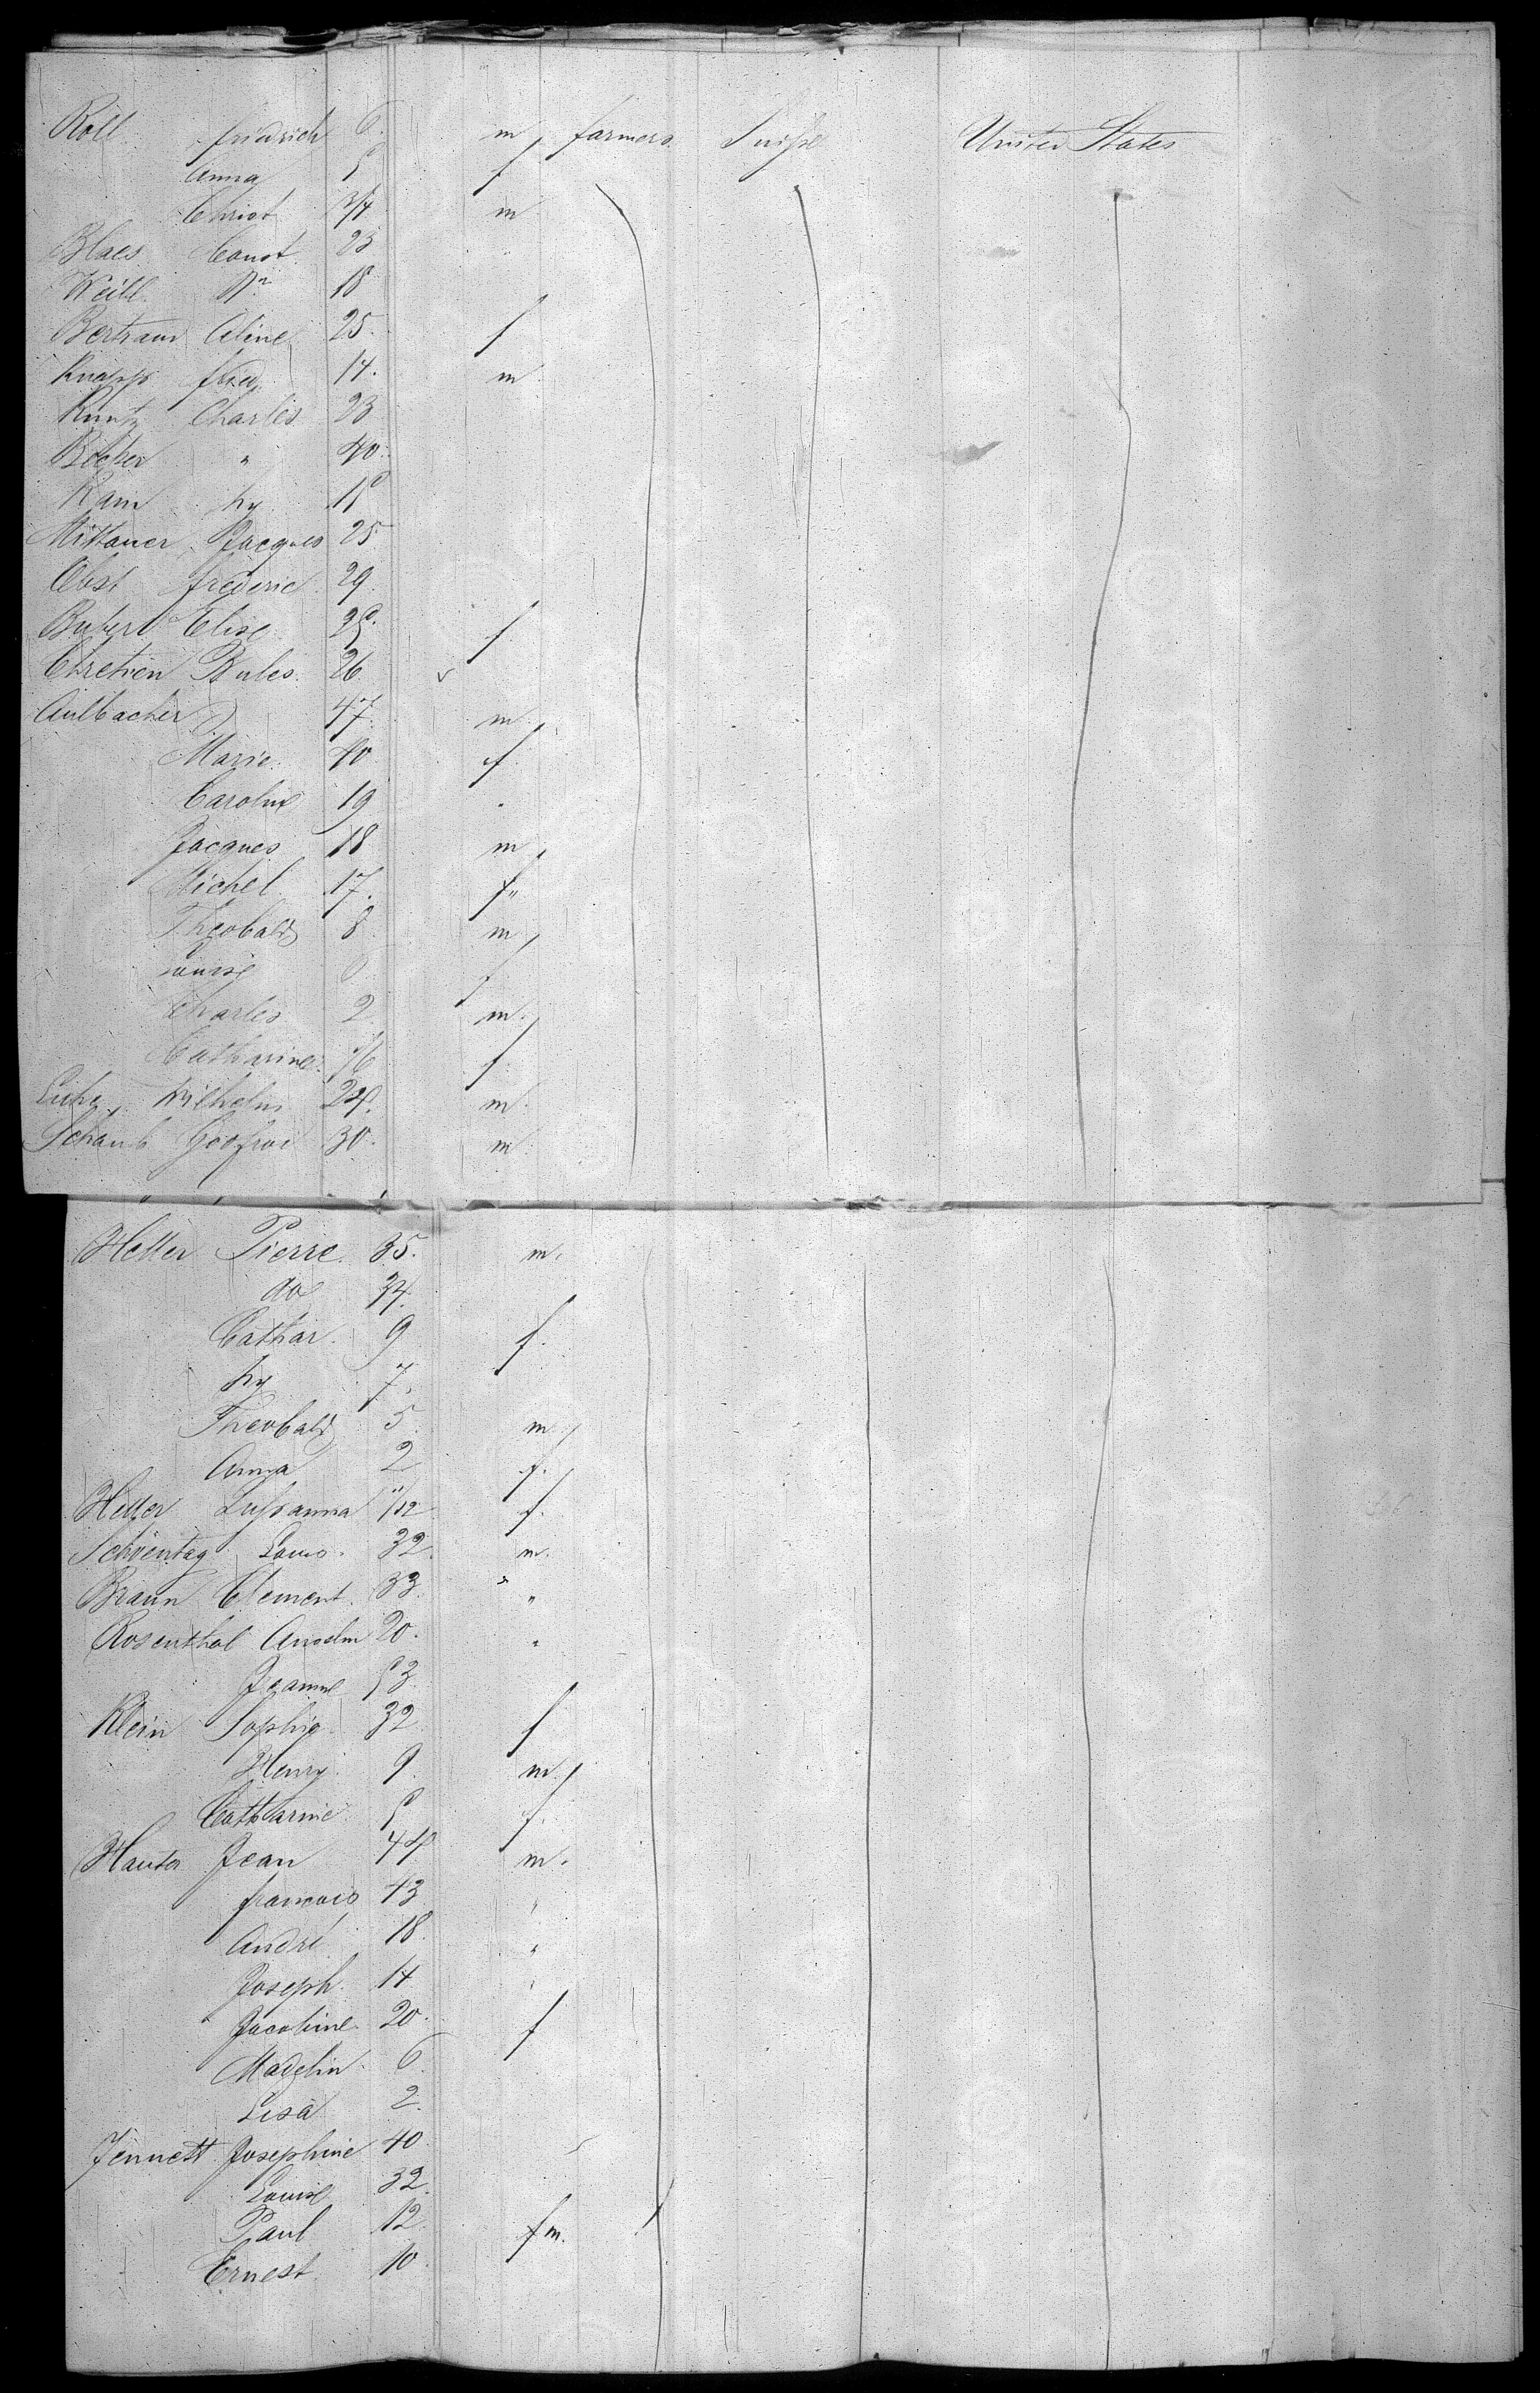 Roll fridrich 6. m farmers Suisse United States
Anna 5 f
Christ 3/4 m
Blaes Const. 23
Weill 18
Bertram Aline 25. f
Knapp fried. 14. m
Kuntz Charles 23
Becker " 40.
Kam hy 15
Mittauer Jacques 25
Obst frederic 29.
Elise 25. f.
Chretien Jules 26
Aulbacher 47. m
Marie 40 f
Caroline 19 "
Jacques 18 m
Michel 17. f "
Theobald 8 m
Louise 6 f
Charles 2 m.
Catharine f
Wilhelm 24. m.
Schaub Godfroi 30. m
Heller Pierre 35. m.
do 34.
Cathar. 9 f.
hy 7.
Theobald 5 m.
Anna 2 f.
Heller Sussanna /12 f.
Schöentag Louis. 32. m.
Braun Clement. 33. "
Rosenthal Anselm 20. "
Jeanne 53.
Klein Sophie 32 f
Henry 9. m.
Catharine 5 f.
Hauter Jean 44 m.
francois 43 "
André 18. "
Joseph. 14 "
Jacobine 20. f
Madelin 6.
Lisa 2.
Jennett Josephine 40
Louise 32.
Paul 12. f m.
Ernest. 10.